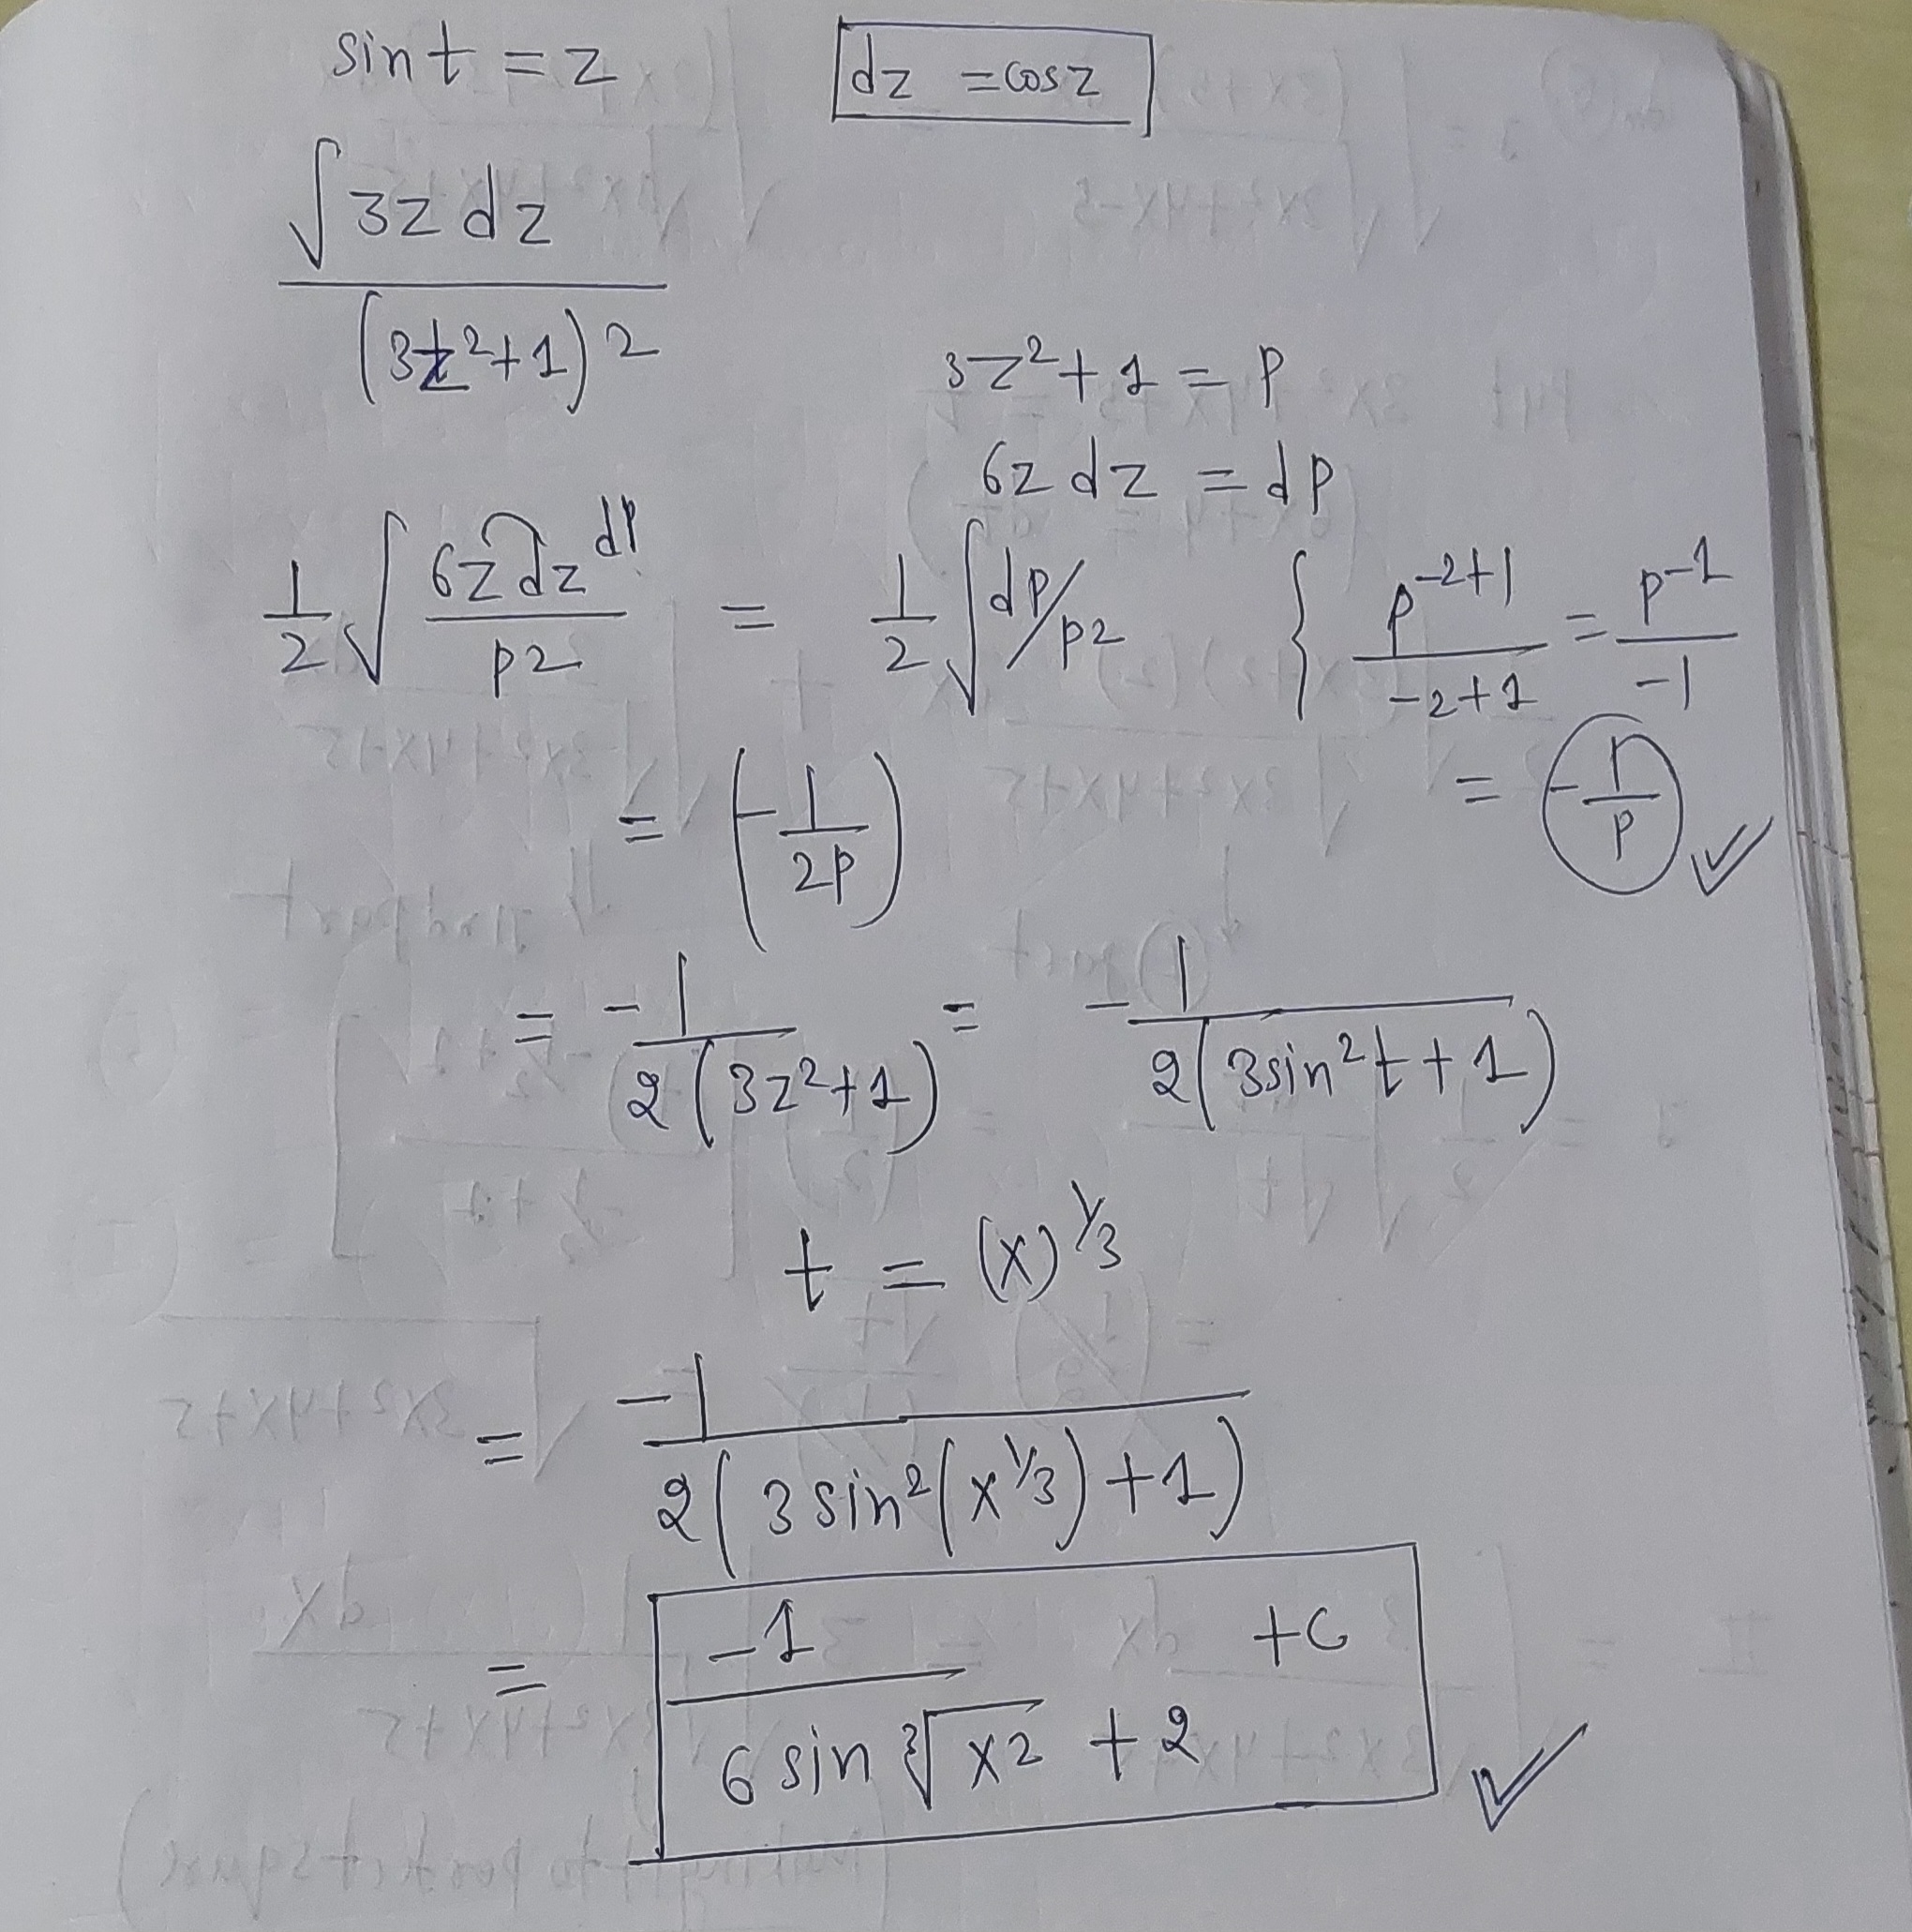 sin t = z    dz = cos z
∫ 3z dz / (3z²+1)²
3z²+1 = p
6z dz = dp
1/2 ∫ 6z dz / p2   dp = 1/2 ∫ dp/p2 { p^-2+1 / -2+1 = p^-1 / -1
= (-1/2p)    = -1/p ✓
= -1 / 2(3z²+1) = -1 / 2(3sin²t+1)
t = (x)^1/3
= -1 / 2(3 sin²(x^1/3)+1)
= -1 / 6 sin ∛x2 + 2   +c ✓